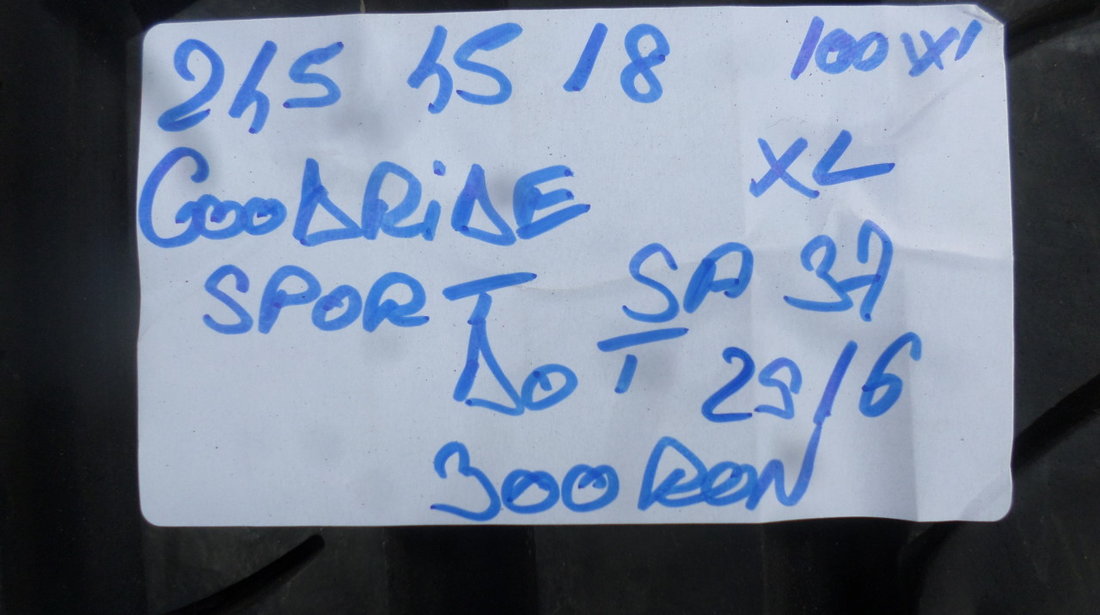 245 45 18 100 W
XL
GOODRiDE
SPORT SA 37
DOT 2516
300 RON